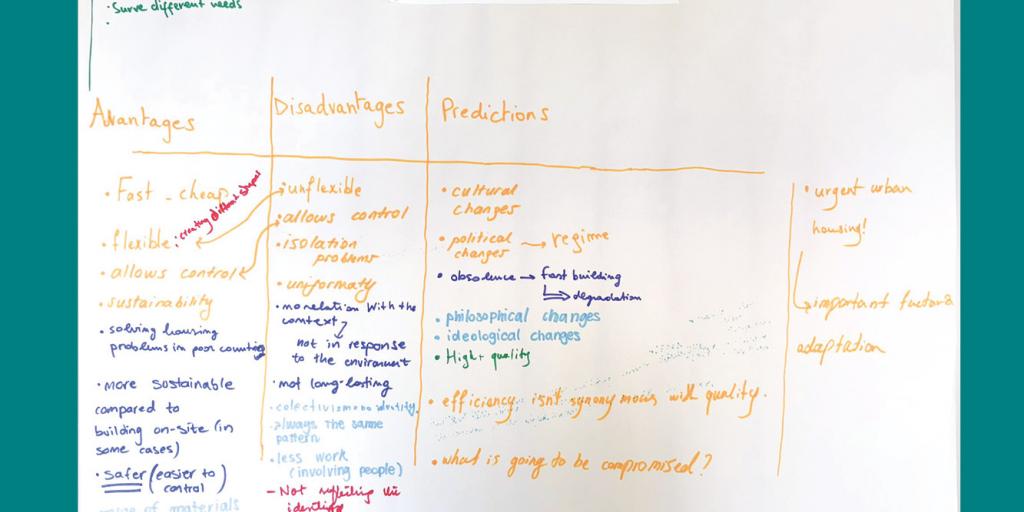 · Surve different needs
·
Avantages
· Fast - cheap
· flexible: creating different shapes
· allows control
· sustainability
· solving housing
problems in poor
· more sustainable
compared to
building on-site (in
some cases)
· safer (easier to
control)
of materials
Disadvantages
· unflexible
· allows control
· isolation
problems
· uniformaty
· no relation with the
context
not in response
to the
· not long-lasting
· colectivism = no identity.
· always the same
pattern
· less work
(involving people)
- Not reflecting the
Predictions
· cultural
changes
· political → regime
changes
· obsolence → fast building
⇒ degradation
· philosophical changes
· ideological changes
· High + quality
· efficiency, isn't synonymous with quality.
· what is going to be compromised?
· urgent urban
housing!
↳ important factor
adaptation